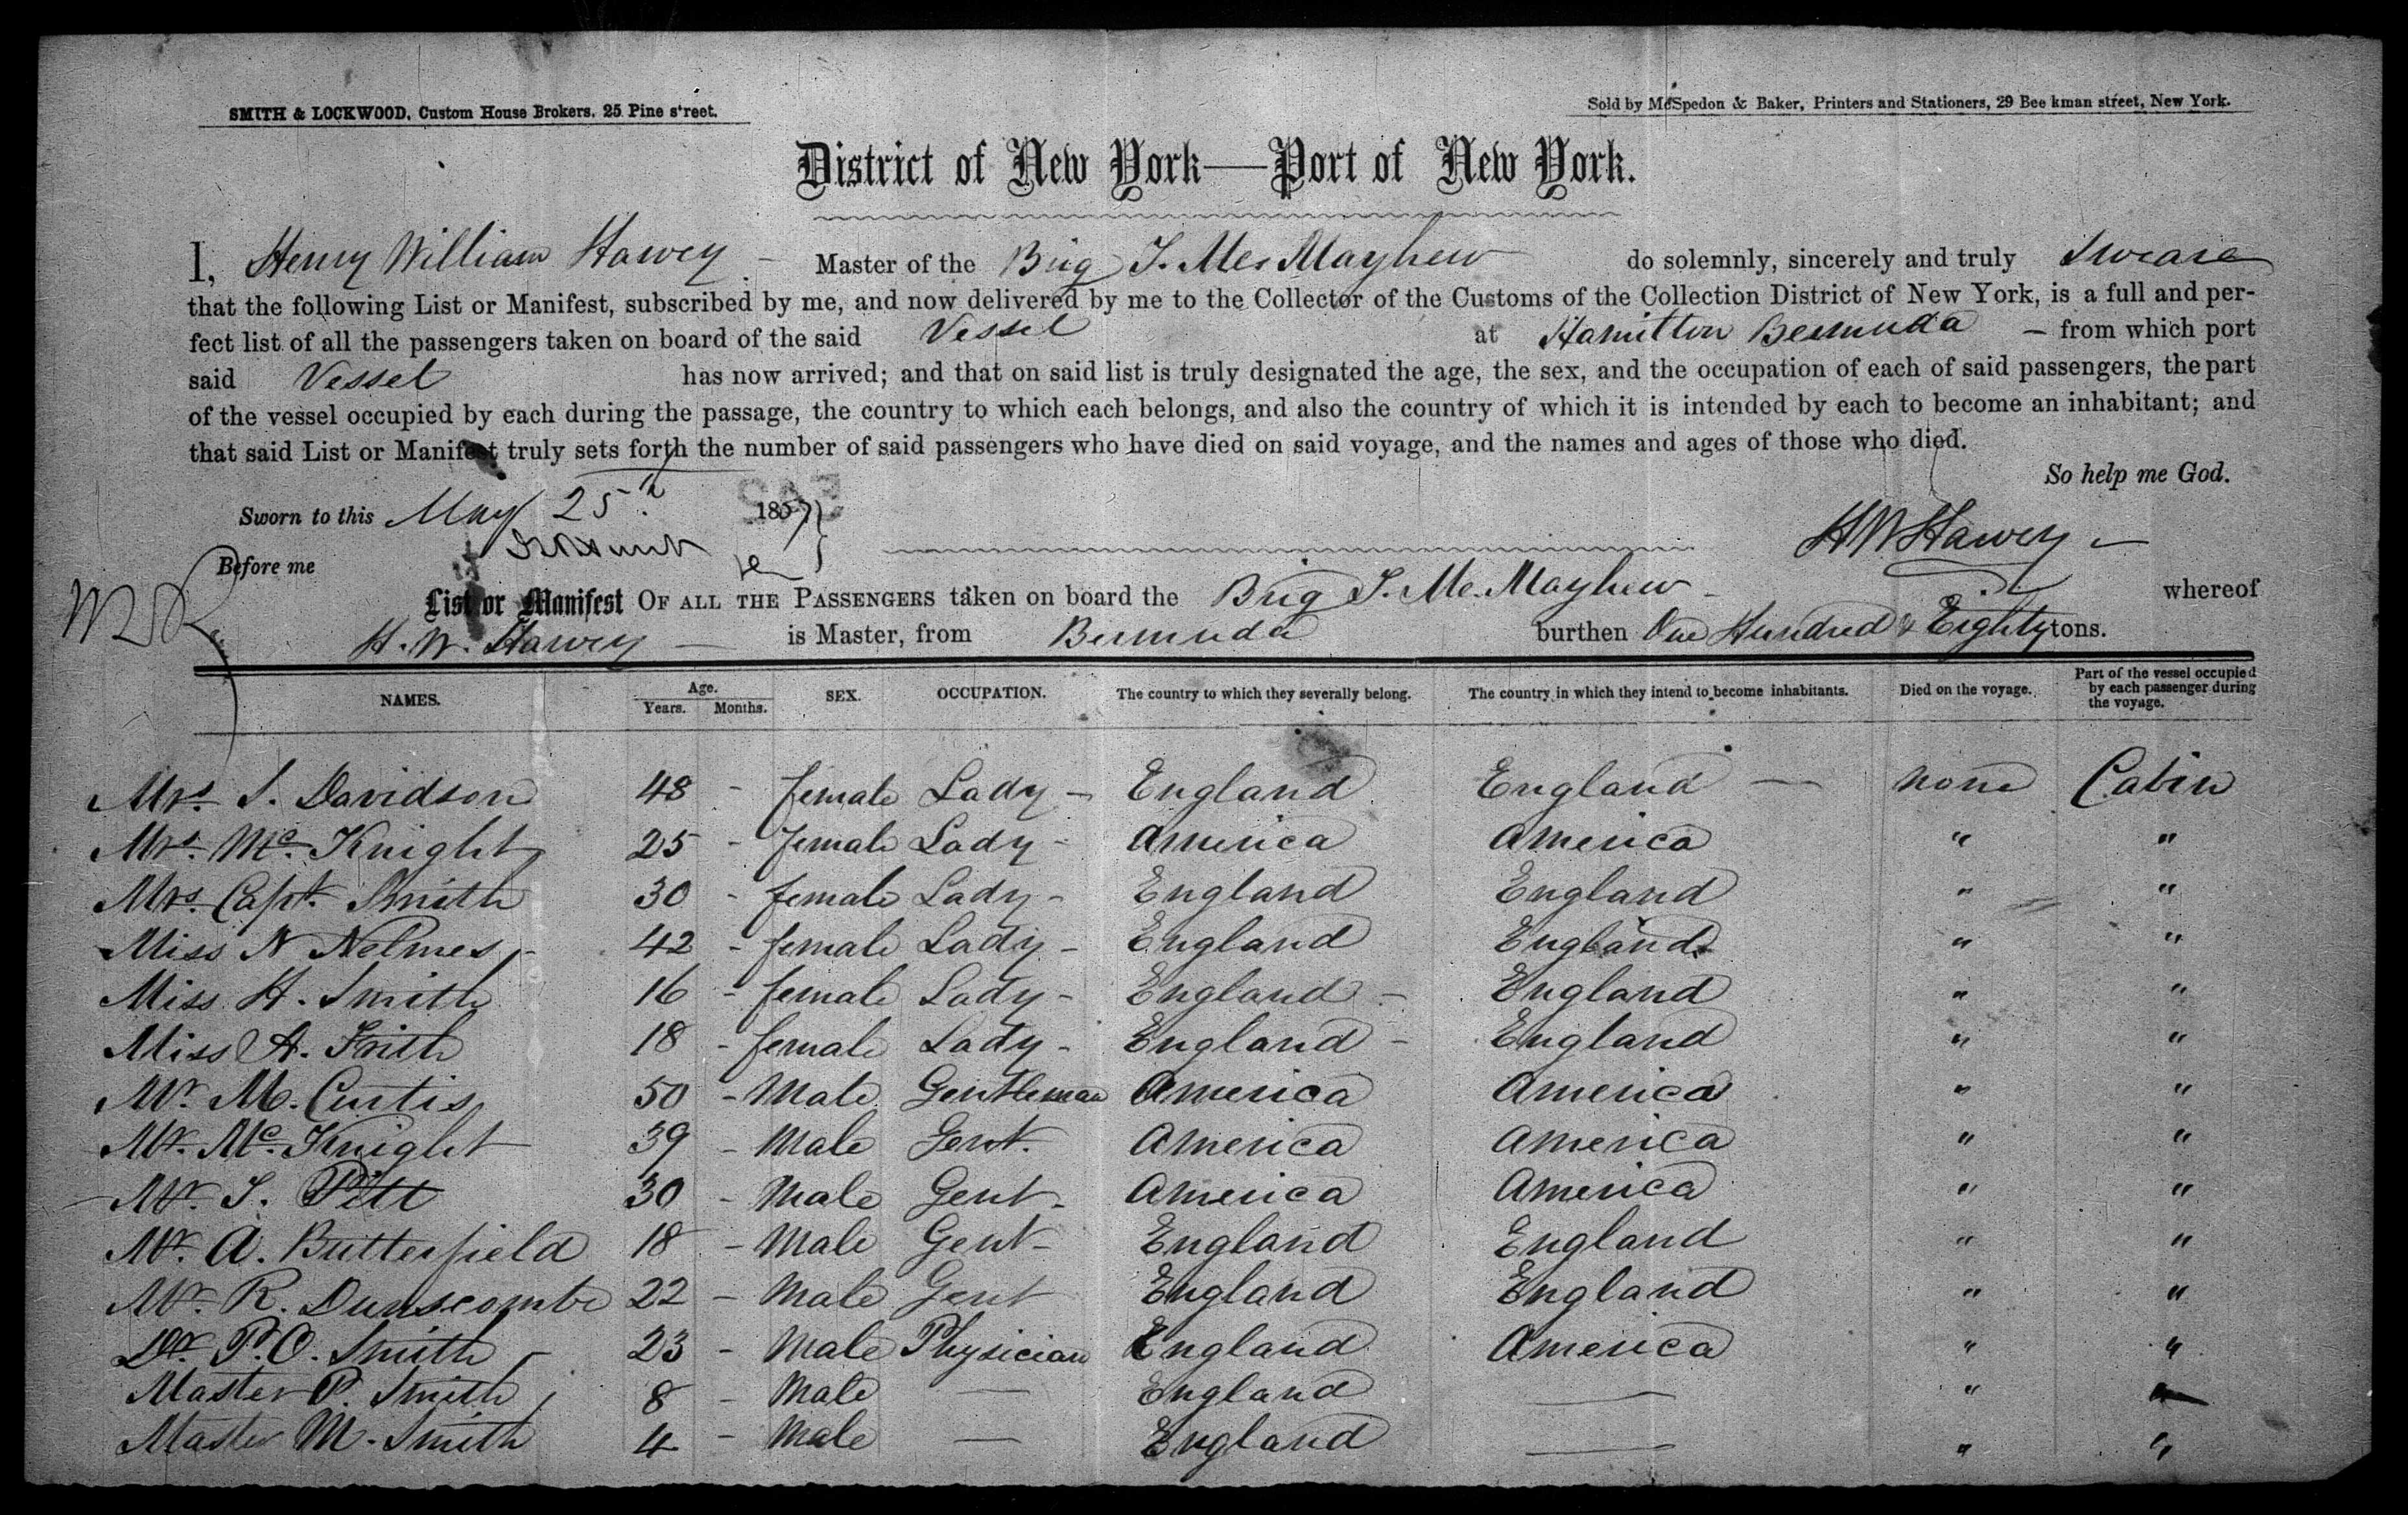 SMITH & LOCKWOOD, Custom House Brokers. 25 Pine street.
Sold by McSpedon & Baker, Printers and Stationers, 29 Beekman street, New York.
District of New York—Port of New York.
I, Henry William Harvey - Master of the Brig T. Mc Mayhew do solemnly, sincerely and truly Sweare
that the following List or Manifest, subscribed by me, and now delivered by me to the Collector of the Customs of the Collection District of New York, is a full and per-
fect list of all the passengers taken on board of the said Vessel at Hamilton Bermuda - from which port
said Vessel has now arrived; and that on said list is truly designated the age, the sex, and the occupation of each of said passengers, the part
of the vessel occupied by each during the passage, the country to which each belongs, and also the country of which it is intended by each to become an inhabitant; and
that said List or Manifest truly sets forth the number of said passengers who have died on said voyage, and the names and ages of those who died.
So help me God.
Sworn to this May 25th 1857
H W Harvey -
Before me
List or Manifest OF ALL THE PASSENGERS taken on board the Brig T. Mc. Mayhew - whereof
H. W. Harvey - is Master, from Bermuda burthen One Hundred & Eighty tons.
NAMES. Age. Years. Months. SEX. OCCUPATION. The country to which they severally belong. The country in which they intend to become inhabitants. Died on the voyage. Part of the vessel occupied by each passenger during the voyage.
Mrs. S. Davidson 48 - female Lady - England England - none Cabin
Mrs. Mc. Knight 25 - female Lady - America America " "
Mrs. Capt. Smith 30 - female Lady - England England " "
Miss N Nelmes - 42 - female Lady - England England " "
Miss H. Smith 16 - female Lady - England - England " "
Miss A. Frith 18 - female Lady - England - England " "
Mr. M. Curtis 50 - Male Gentleman America America " "
Mr. Mc. Knight 39 - Male Gent. America America " "
Mr. S. Pitt 30 - Male Gent - America America " "
Mr. A. Butterfield 18 - Male Gent - England England " "
Mr. R. Dunscombe 22 - Male Gent England England " "
Dr. P. O. Smith - 23 - Male Physician England America " "
Master P. Smith 8 - Male — England — " "
Master M. Smith 4 - Male — England — " "